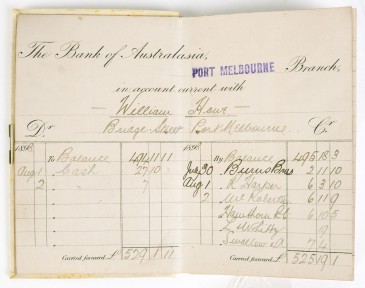 The Bank of Australasia,
PORT MELBOURNE Branch,
in account current with
William Howe
Bridge Street Port Melbourne
Dr Cr
1898 To Balance 494 11 11 1898 By Balance 495 18 3
Aug 1 Cash 27 10 July 30 Burns Bros 2 11 10
2 " 7 Aug 1 R Harper 6 3 10
2 6 11 9
Hawthorn 6 10 5
L White 19
Swallow & A 7 4
Carried forward £ 529 1 11 Carried forward £ 525 19 1